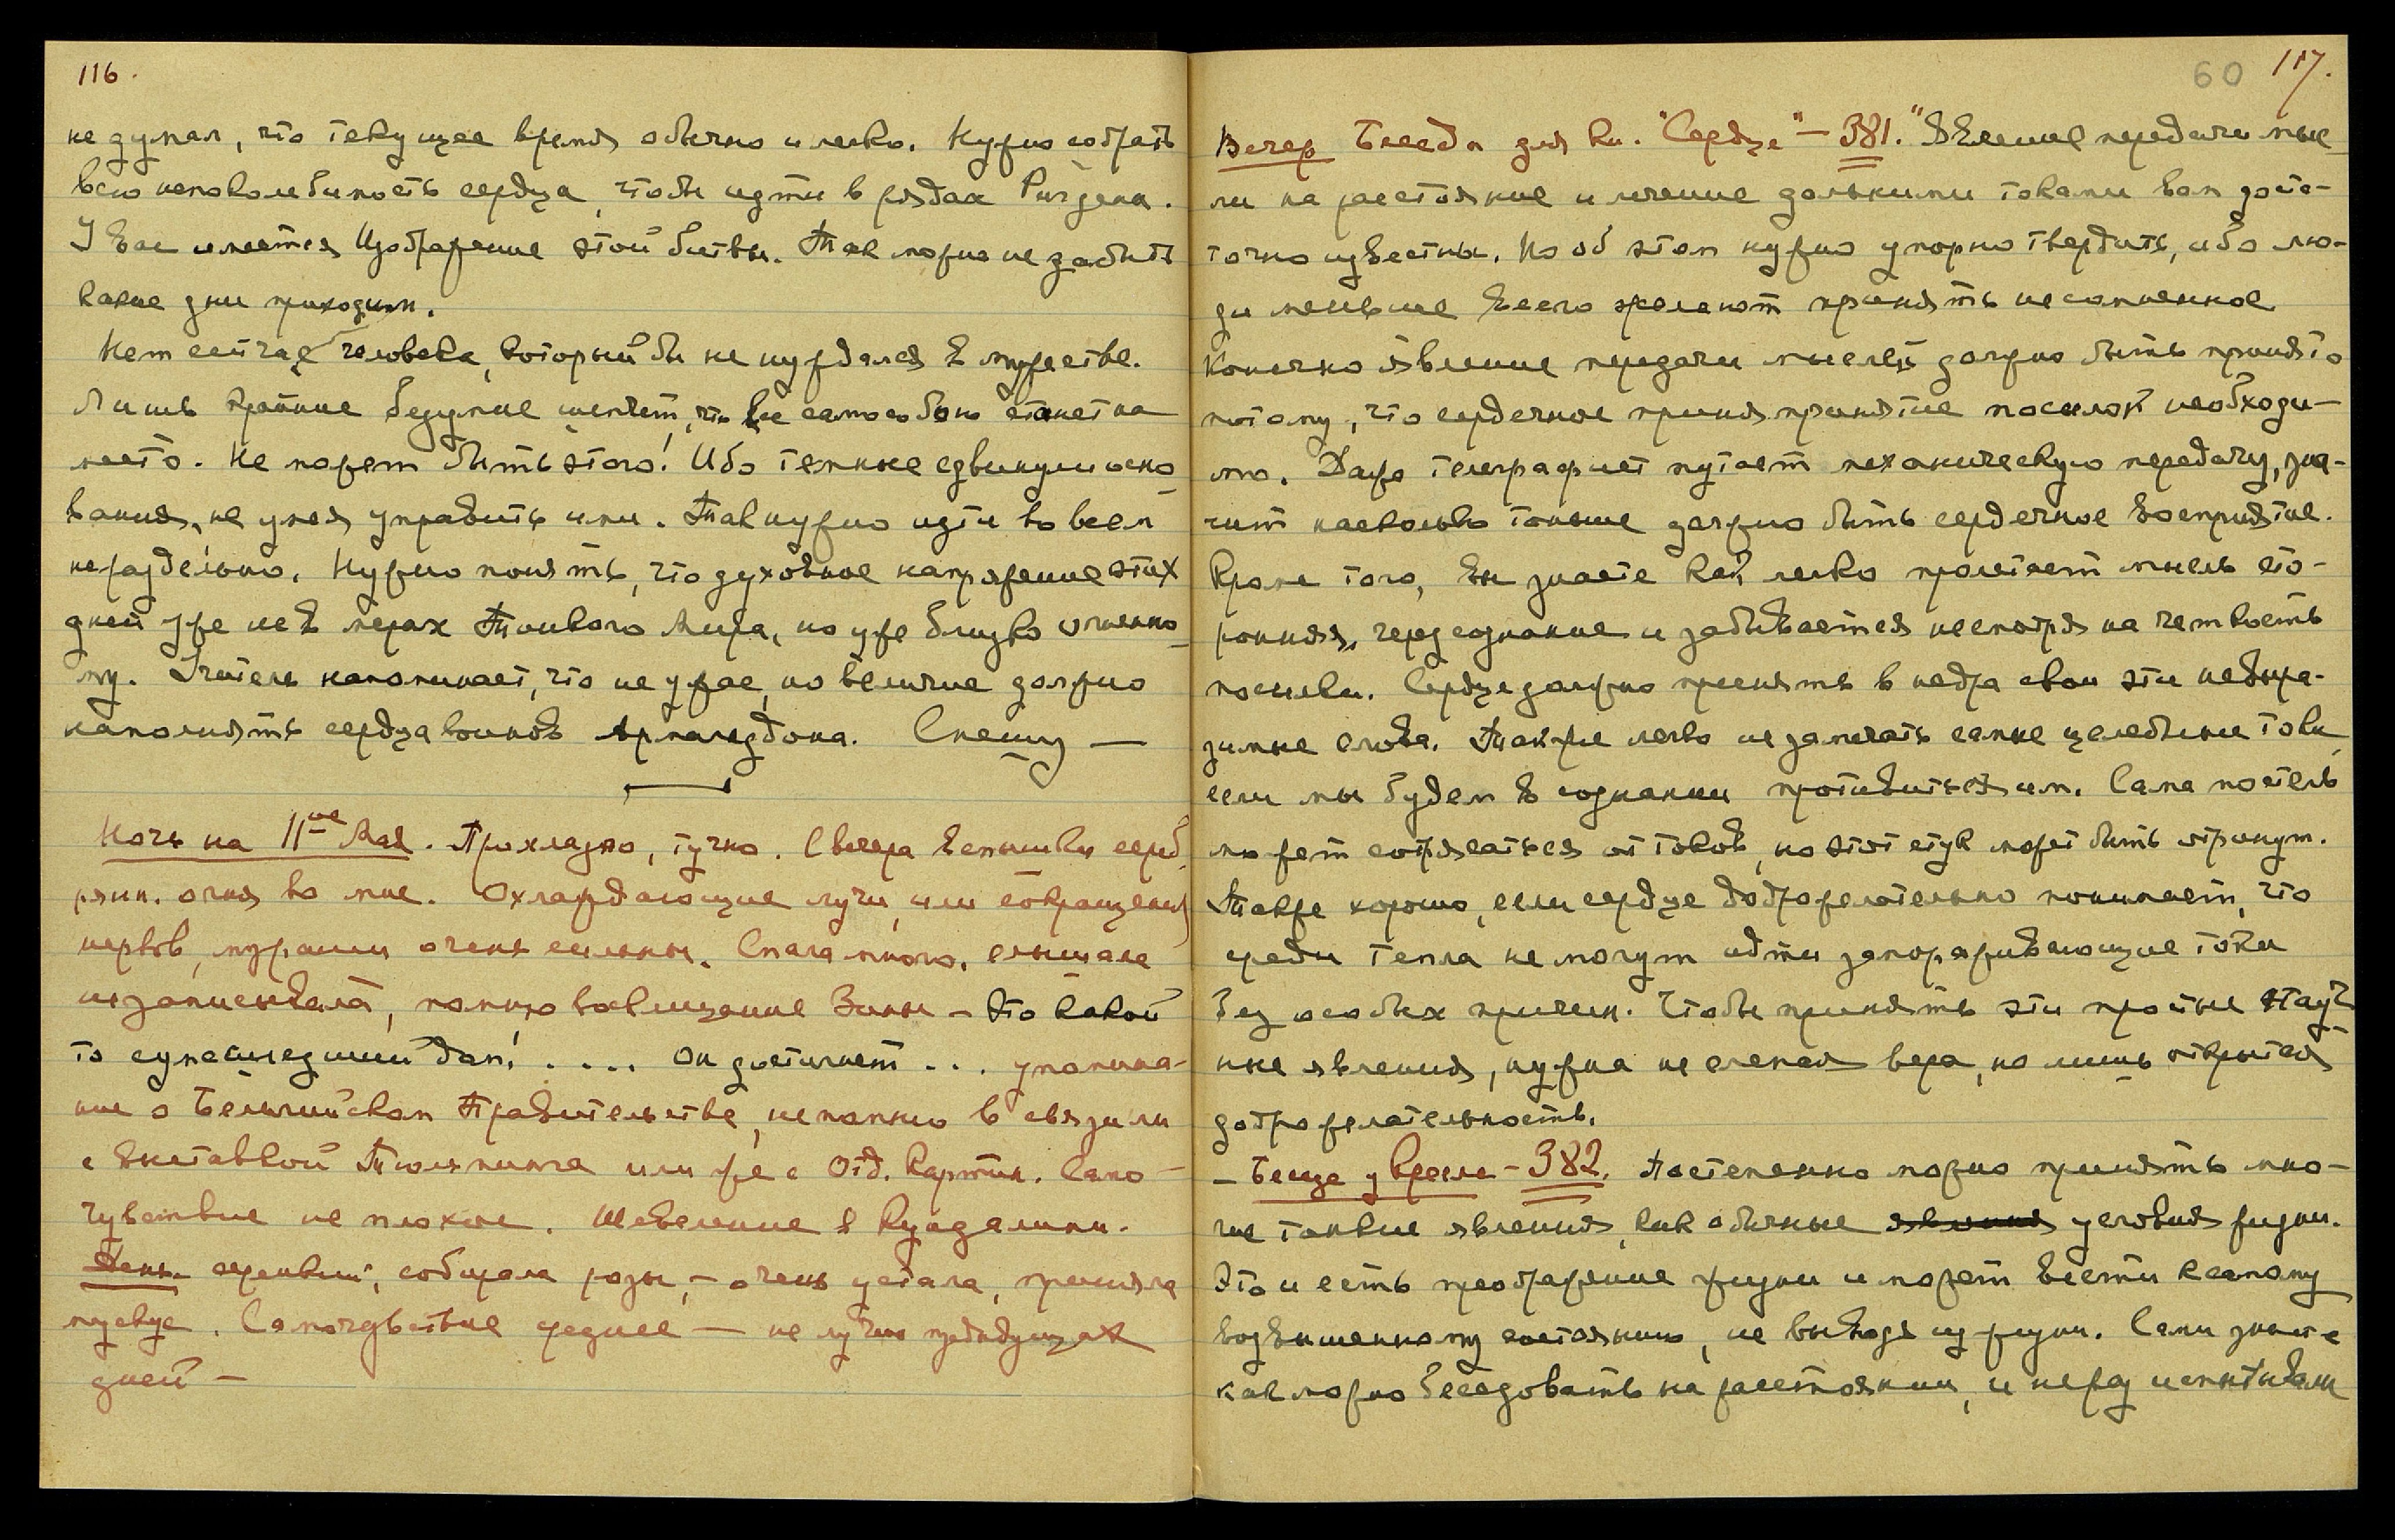 116.
не думал, что текущее время обычно и легко. Нужно собрать
всю непоколебимость сердца, чтобы идти в рядах Ригдена.
У Вас имеется Изображение этой битвы. Так можно не забыть
какие дни приходим.
Нет сейчас человека, который бы не нуждался в мужестве.
Лишь крайнее безумие шепчет, что все само собою станет на
место. Не может быть этого! Ибо темные сдвинули осно-
вания, не умея управить ими. Так нужно идти во всем
нераздельно. Нужно понять, что духовное напряжение этих
дней уже не в мерах Тонкого Мира, но уже близко огненно-
му. Учитель напоминает, что не ужас, но величие должно
наполнять сердца воинов Армагеддона. Спешу —
Ночь на 11ое Мая. Прохладно, тучно. С вечера вспышки сереб.
рян. огня во мне. Охлаждающие лучи, или сокращения
нервов, мурашки очень сильны. Спала много, слышала
не записывала, помню восклицание Зины – Это какой
то сумасшедший дом! .... Он достигнет ... упомина-
ние о Бельгийском Правительстве, не помню в связи ли
с выставкой Тюльпинка или же с Отд. Картин. Само-
чувствие не плохое. Шевеление в Кундалини.
День. серенький, собирала розы, – очень устала, приняла
мускус. Самочувствие среднее — не лучше предыдущих
дней –
60 117.
Вечер Беседа для кн. "Сердце" – 381. "Явление передачи мыс-
ли на расстояние и лечение дальними токами вам доста-
точно известны. Но об этом нужно упорно твердить, ибо лю-
ди меньше всего желают принять несомненное.
Конечно явление передачи мыслей должно быть принято
потому, что сердечное приня принятие посылок необходи-
мо. Даже телеграфист путает механическую передачу, зна-
чит насколько тоньше должно быть сердечное восприятие.
Кроме того, вы знаете как легко пролетает мысль сто-
ронняя, через сознание и забывается несмотря на четкость
посылки. Сердце должно принять в недра свои эти невыра-
зимые слова. Также легко не замечать самые целебные токи,
если мы будем в сознании противиться им. Сама постель
может сотрясаться от токов, но этот стук может быть отринут.
Также хорошо, если сердце доброжелательно понимает, что
среди тепла не могут идти замораживающие токи
без особых причин. Чтобы принять эти простые науч-
ные явления, нужна не слепая вера, но лишь открытая
доброжелательность.
– Беседа у кресла – 382. Постепенно можно принять мно-
гие тонкие явления, как обычные явления условия жизни.
Это и есть преображение жизни и может вести к самому
возвышенному состоянию, не выводя из жизни. Сами знаете
как можно беседовать на расстоянии, и не раз испытывали